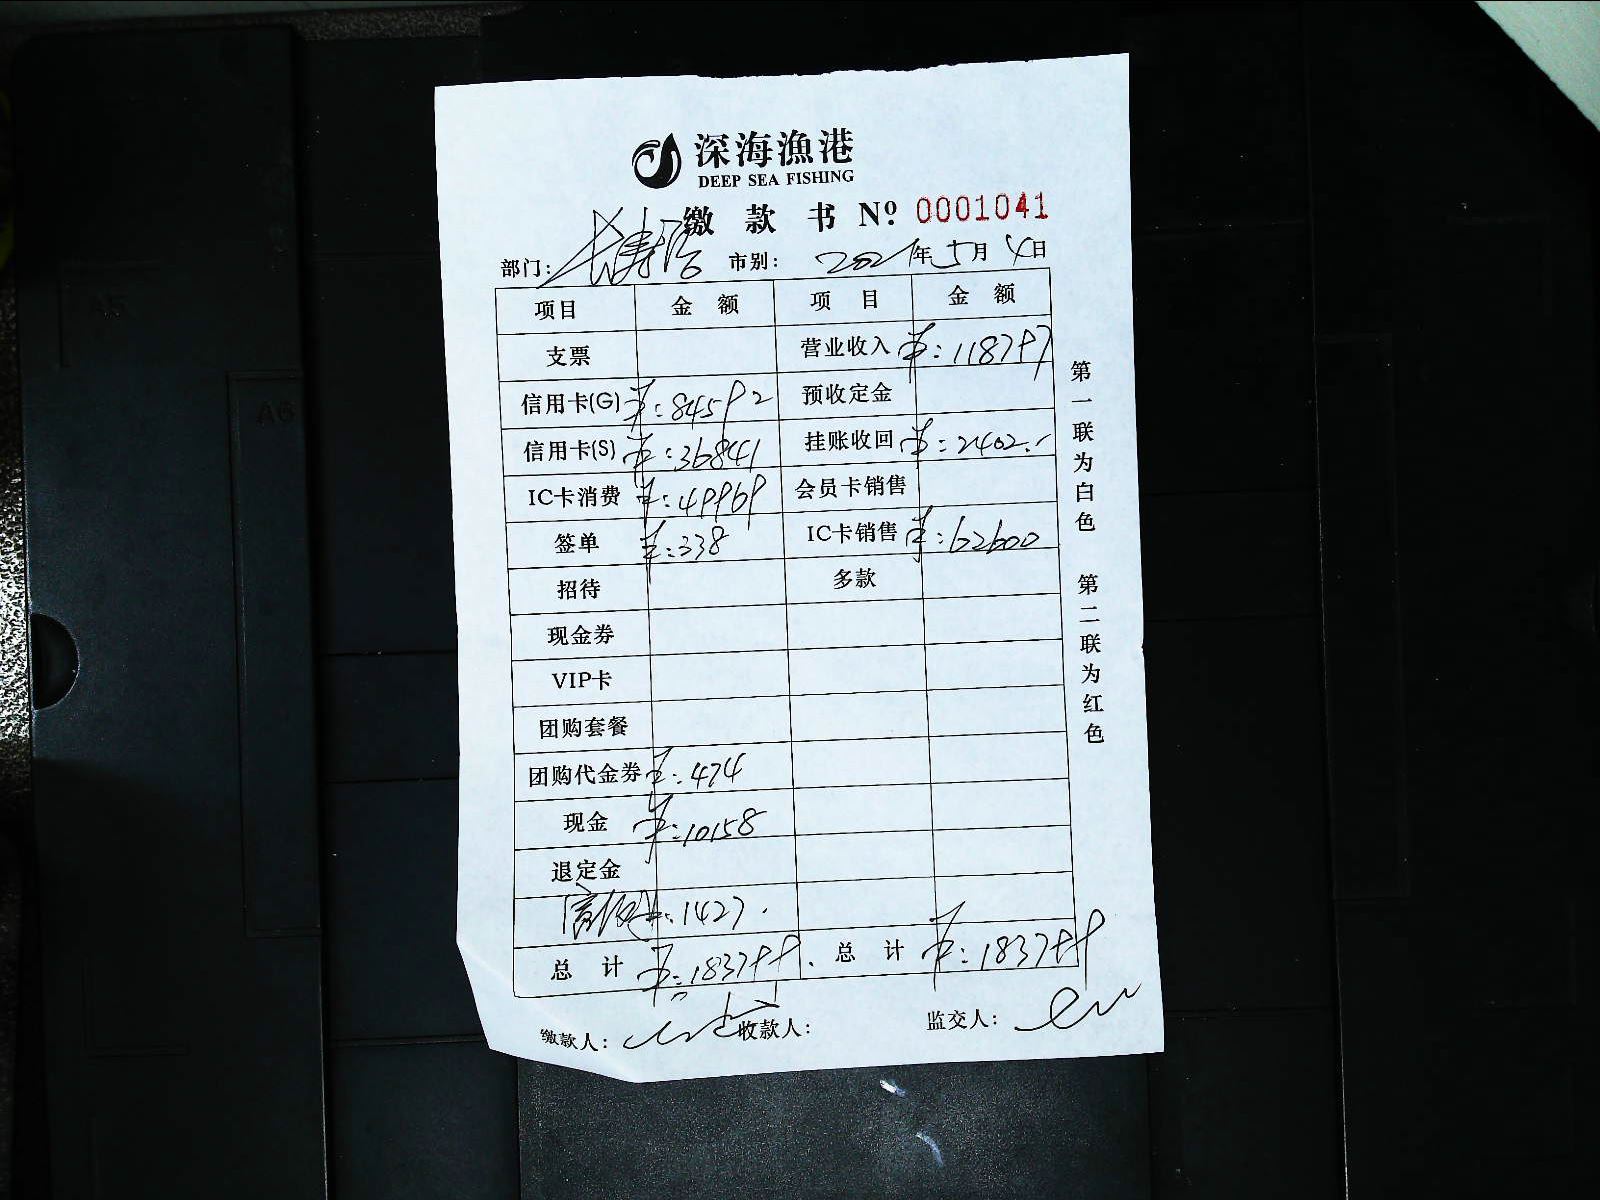 深海漁港
DEEP SEA FISHING
缴款书 Nº 0001041
部门: 长寿路 市别: 2021年5月4日
项目 金额 项目 金额
支票 营业收入 ¥:118797
信用卡(G) ¥:84592 预收定金
信用卡(S) ¥:36841 挂账收回 ¥:2402.
IC卡消费 ¥:49969 会员卡销售
签单 ¥:338 IC卡销售 ¥:62600
招待 多款
现金券
VIP卡
团购套餐
团购代金券 ¥:474
现金 ¥:10158
退定金
¥:1427.
总计 ¥:183799. 总计 ¥:183799
缴款人: 收款人: 监交人:
第一联为白色 第二联为红色
A5
A6